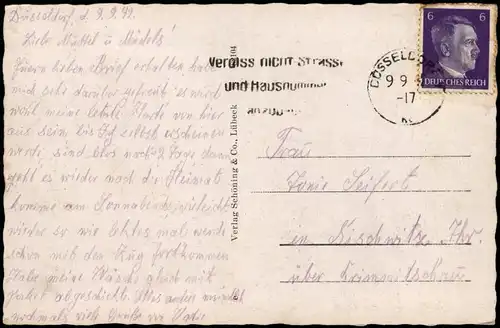 Düsseldorf, d. 9.9.42.
Liebe Muttel u Mädels!
Euern lieben Brief erhalten habe
mich sehr darüber gefreut es wird
wohl meine letzte Karte von hier
aus sein, bis ich selbst erscheinen
werde, sind blos noch 2 Tage dann
geht es wieder nach der Heimat
komme am Sonnabend, vieleicht
wieder so wie letztes mal werde
schon mit dem Zug fortkommen
Habe meine Wäsche gleich mit
Paket abgeschickt. Alles andere mündlich
nochmals viele Grüße von
Vergiss nicht Strasse
und Hausnummer
anzugeben
DÜSSELDORF
9 9
-17
6 6
DEUTSCHES REICH
Verlag Schöning & Co., Lübeck
Frau
Seifert
in
über Crimmitschau